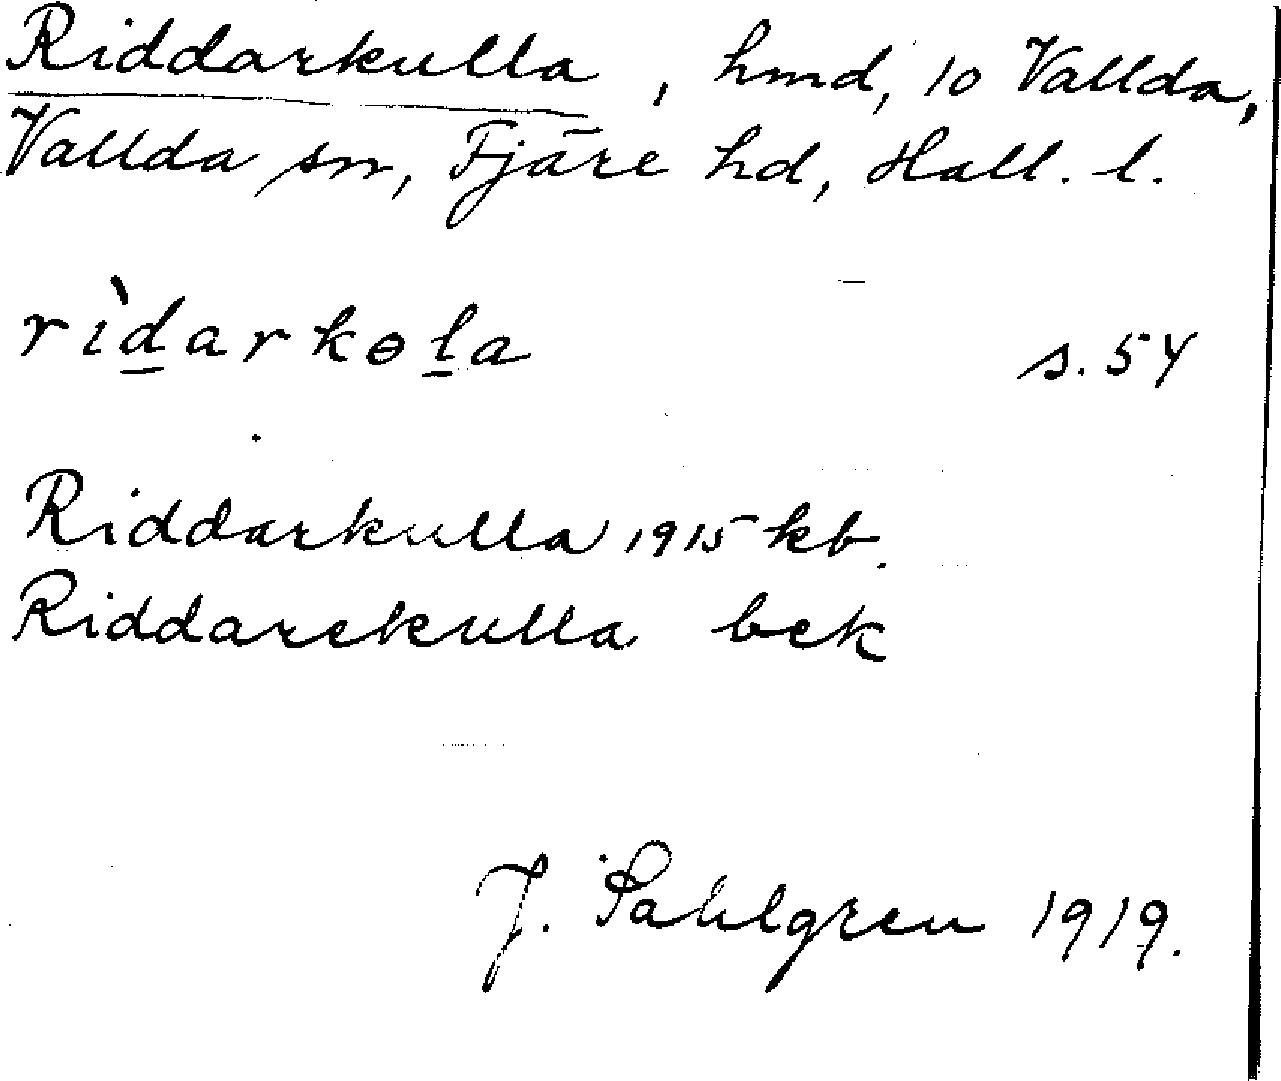 Riddarkulla, hmd, 10 Vallda,
Vallda sn, Fjäre hd, Hall. l.
rìd̲arkɵl̲a s. 54
Riddarkulla 1915 kb.
Riddarekulla bek
J. Sahlgren 1919.